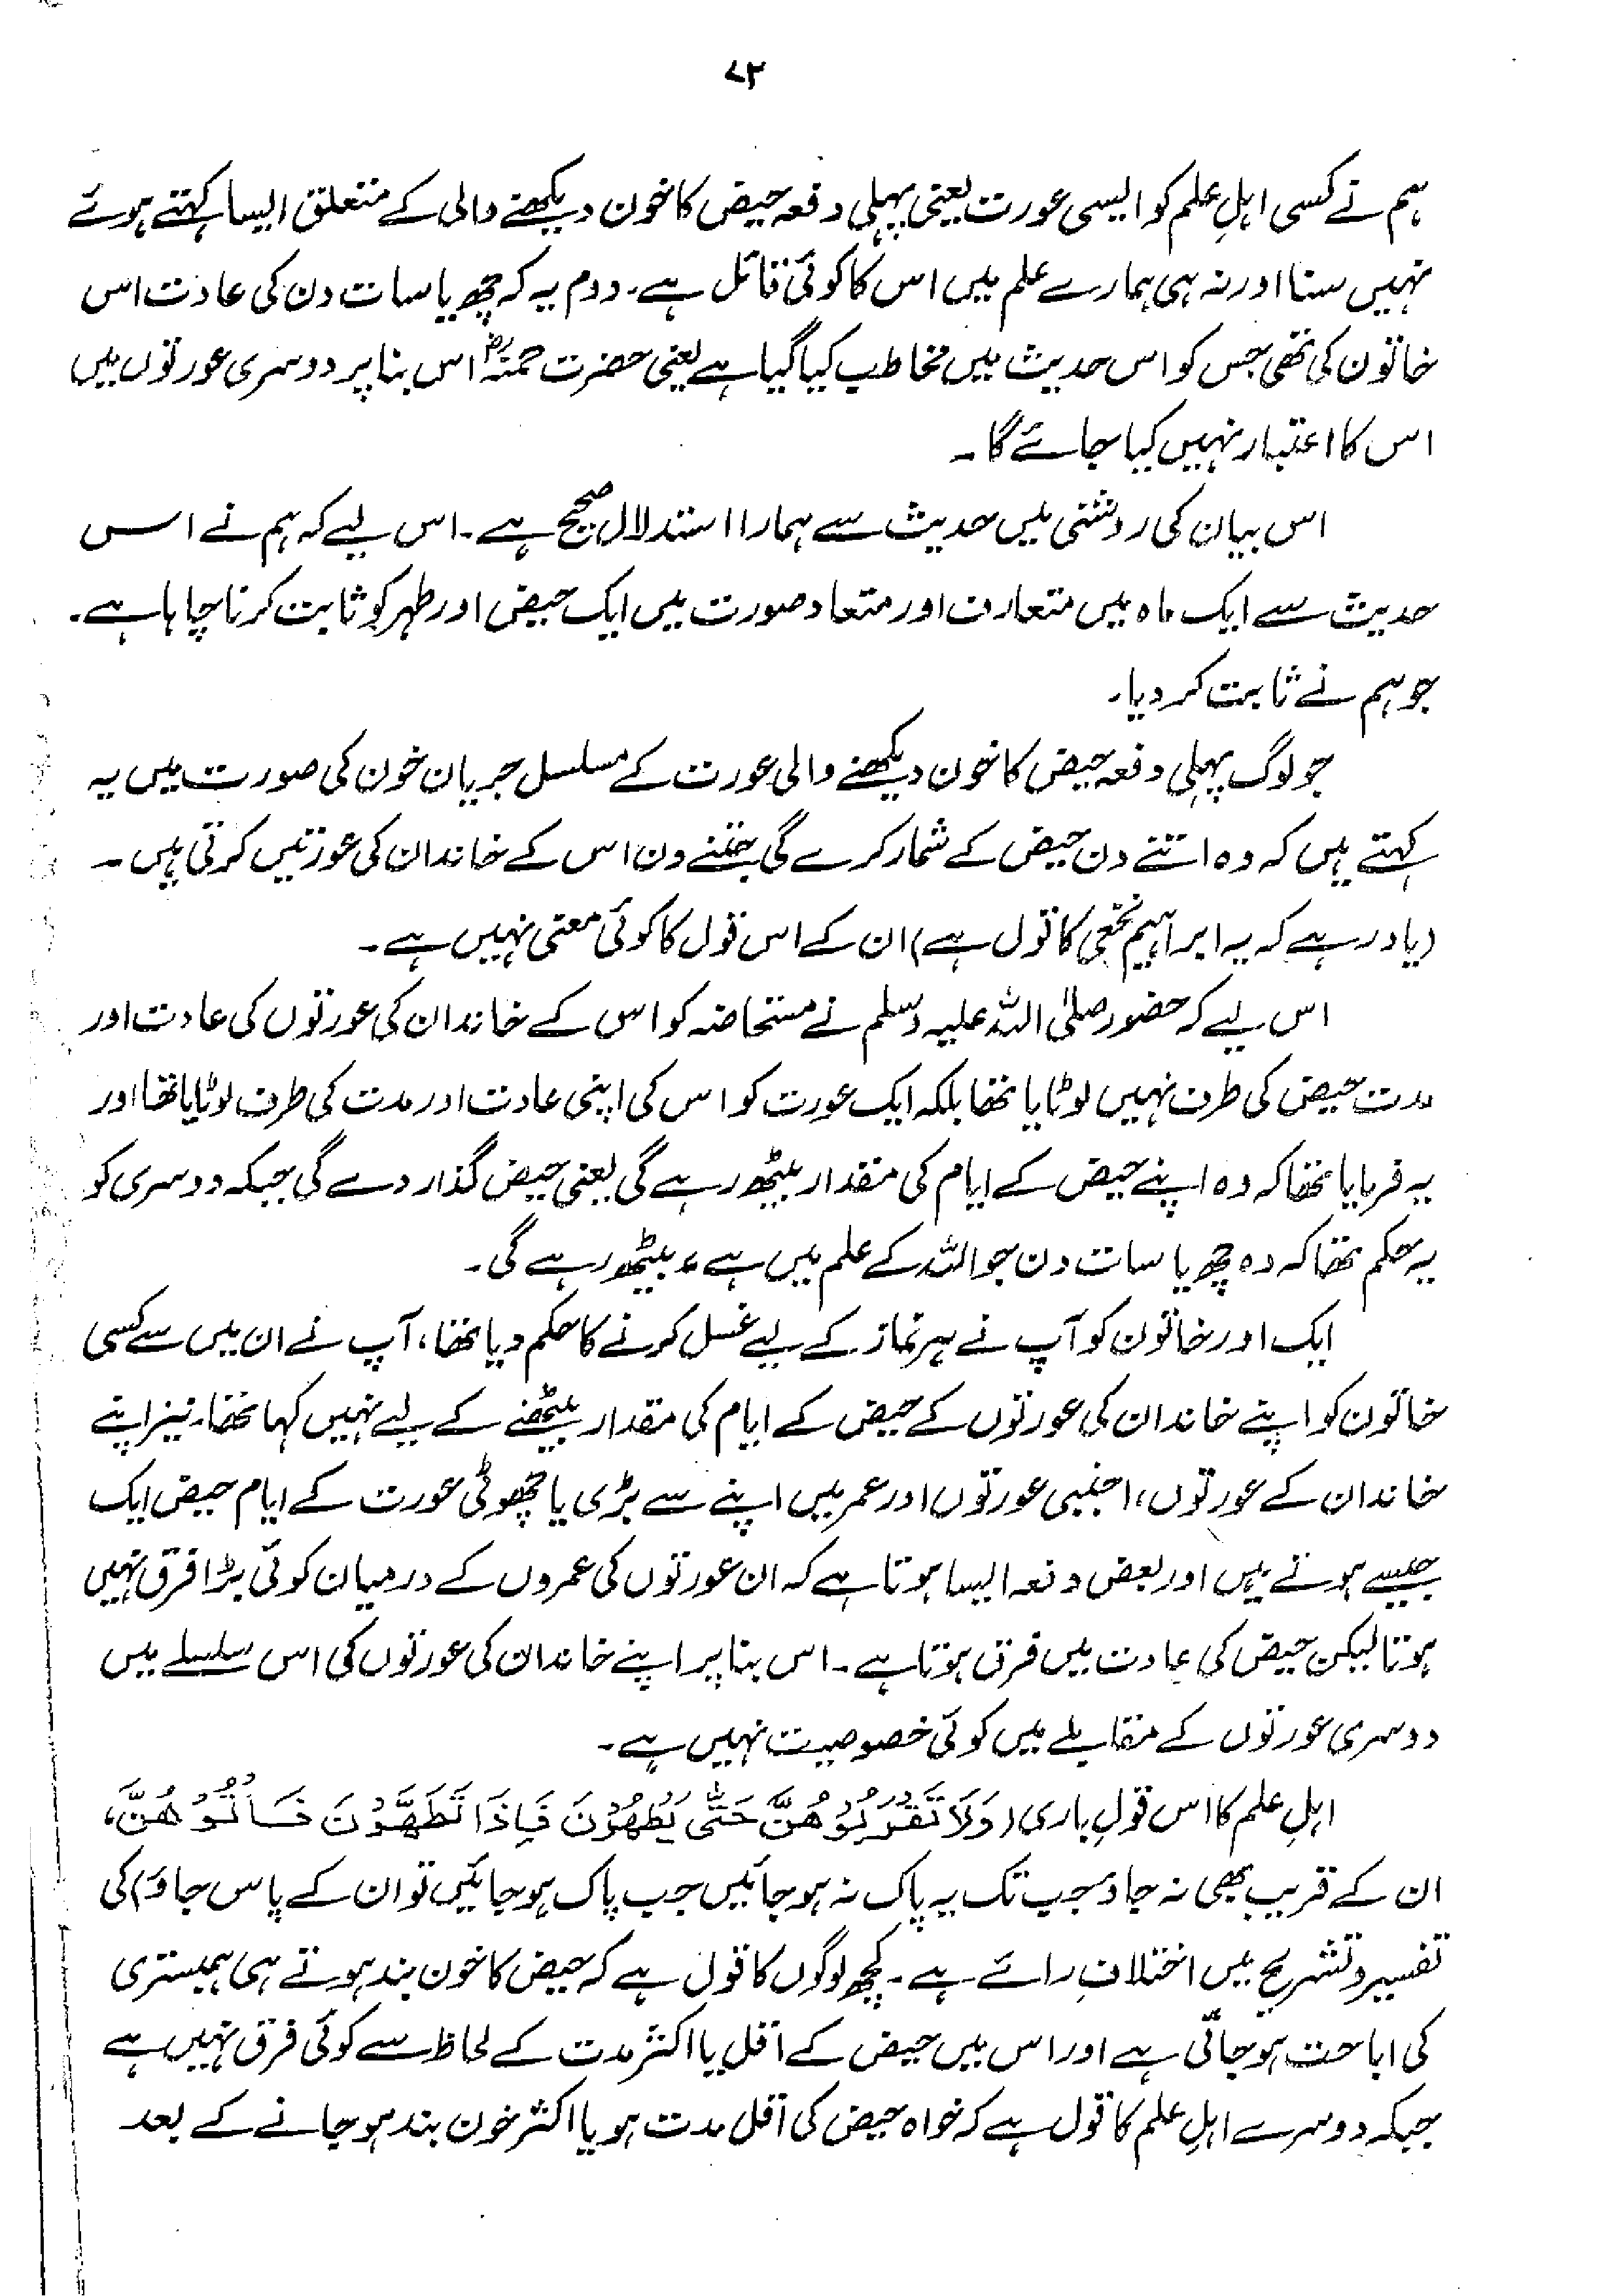 ۷۲
ہم نے کسی اہلِ علم کو ایسی عورت یعنی پہلی دفعہ حیض کا خون دیکھنے والی کے متعلق ایسا کہتے ہوئے
نہیں سنا اور نہ ہی ہمارے علم میں اس کا کوئی قائل ہے۔ دوم یہ کہ چھ یا سات دن کی عادت اس
خاتون کی تھی جس کو اس حدیث میں مخاطب کیا گیا ہے یعنی حضرت حمنہؓ اس بنا پر دوسری عورتوں میں
اس کا اعتبار نہیں کیا جائے گا۔
اس بیان کی روشنی میں حدیث سے ہمارا استدلال صحیح ہے۔ اس لیے کہ ہم نے اس
حدیث سے ایک ماہ میں متعارف اور متعاد صورت میں ایک حیض اور طہر کو ثابت کرنا چاہا ہے۔
جو ہم نے ثابت کر دیا۔
جو لوگ پہلی دفعہ حیض کا خون دیکھنے والی عورت کے مسلسل جریان خون کی صورت میں یہ
کہتے ہیں کہ وہ اتنے دن حیض کے شمار کرے گی جتنے دن اس کے خاندان کی عورتیں کرتی ہیں۔
(یاد رہے کہ یہ ابراہیم نخعی کا قول ہے) ان کے اس قول کا کوئی معنی نہیں ہے۔
اس لیے کہ حضور صلی اللہ علیہ وسلم نے مستحاضہ کو اس کے خاندان کی عورتوں کی عادت اور
مدت حیض کی طرف نہیں لوٹایا تھا بلکہ ایک عورت کو اس کی اپنی عادت اور مدت کی طرف لوٹایا تھا اور
یہ فرمایا تھا کہ وہ اپنے حیض کے ایام کی مقدار بیٹھ رہے گی یعنی حیض گذار دے گی جبکہ دوسری کو
یہ حکم تھا کہ وہ چھ یا سات دن جو اللہ کے علم میں ہے، بیٹھ رہے گی۔
ایک اور خاتون کو آپ نے ہر نماز کے لیے غسل کرنے کا حکم دیا تھا، آپ نے ان میں سے کسی
خاتون کو اپنے خاندان کی عورتوں کے حیض کے ایام کی مقدار بیٹھنے کے لیے نہیں کہا تھا۔ نیز اپنے
خاندان کے عورتوں، اجنبی عورتوں اور عمر میں اپنے سے بڑی یا چھوٹی عورت کے ایام حیض ایک
جیسے ہوتے ہیں اور بعض دفعہ ایسا ہوتا ہے کہ ان عورتوں کی عمروں کے درمیان کوئی بڑا فرق نہیں
ہوتا لیکن حیض کی عادت میں فرق ہوتا ہے۔ اس بنا پر اپنے خاندان کی عورتوں کی اس سلسلے میں
دوسری عورتوں کے مقابلے میں کوئی خصوصیت نہیں ہے۔
اہلِ علم کا اس قولِ باری (وَلَا تَقْرَبُوْهُنَّ حَتّٰى يَطْهُرْنَ فَاِذَا تَطَهَّرْنَ فَأْتُوْهُنَّ،
ان کے قریب بھی نہ جاؤ جب تک یہ پاک نہ ہو جائیں جب پاک ہو جائیں تو ان کے پاس جاؤ) کی
تفسیر و تشریح میں اختلافِ رائے ہے۔ کچھ لوگوں کا قول ہے کہ حیض کا خون بند ہوتے ہی ہمبستری
کی اباحت ہو جاتی ہے اور اس میں حیض کے اقل یا اکثر مدت کے لحاظ سے کوئی فرق نہیں ہے
جبکہ دوسرے اہلِ علم کا قول ہے کہ خواہ حیض کی اقل مدت ہو یا اکثر خون بند ہو جانے کے بعد